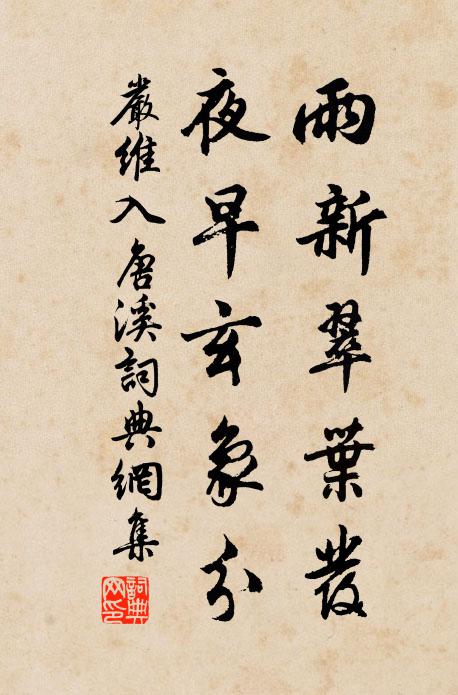 雨新翠葉發
夜早玄象分
嚴維入唐溪詞典網集
詞典